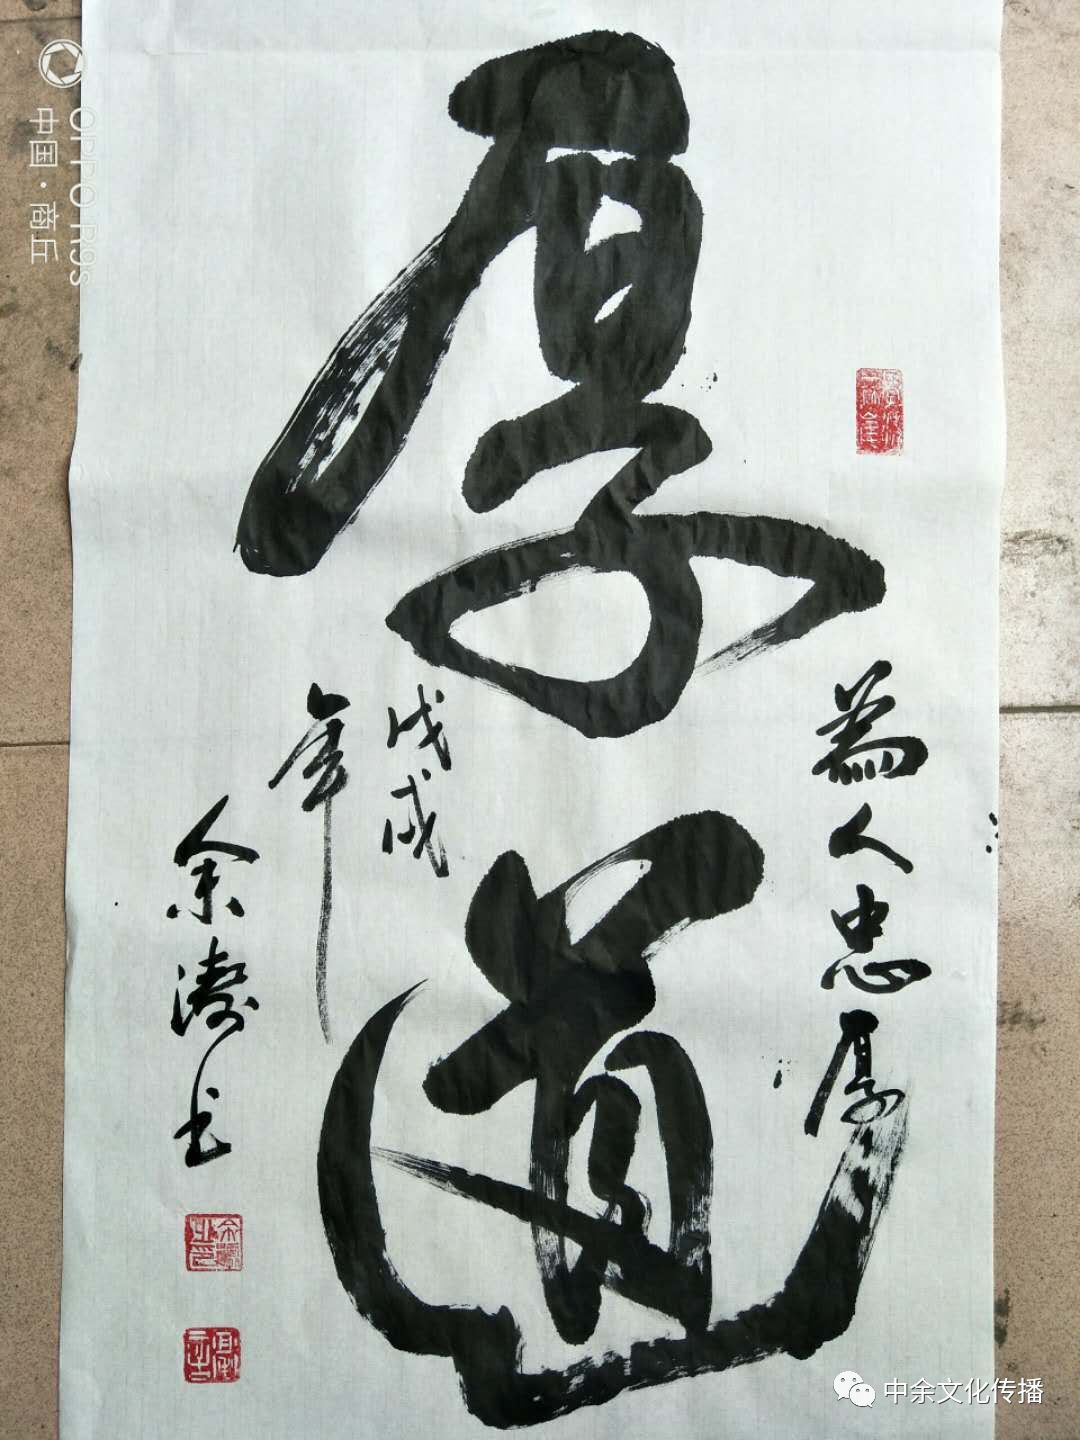 厚道
為人忠厚
戊戌
年
余濤书
OPPO R9s
中国·商丘
中余文化传播